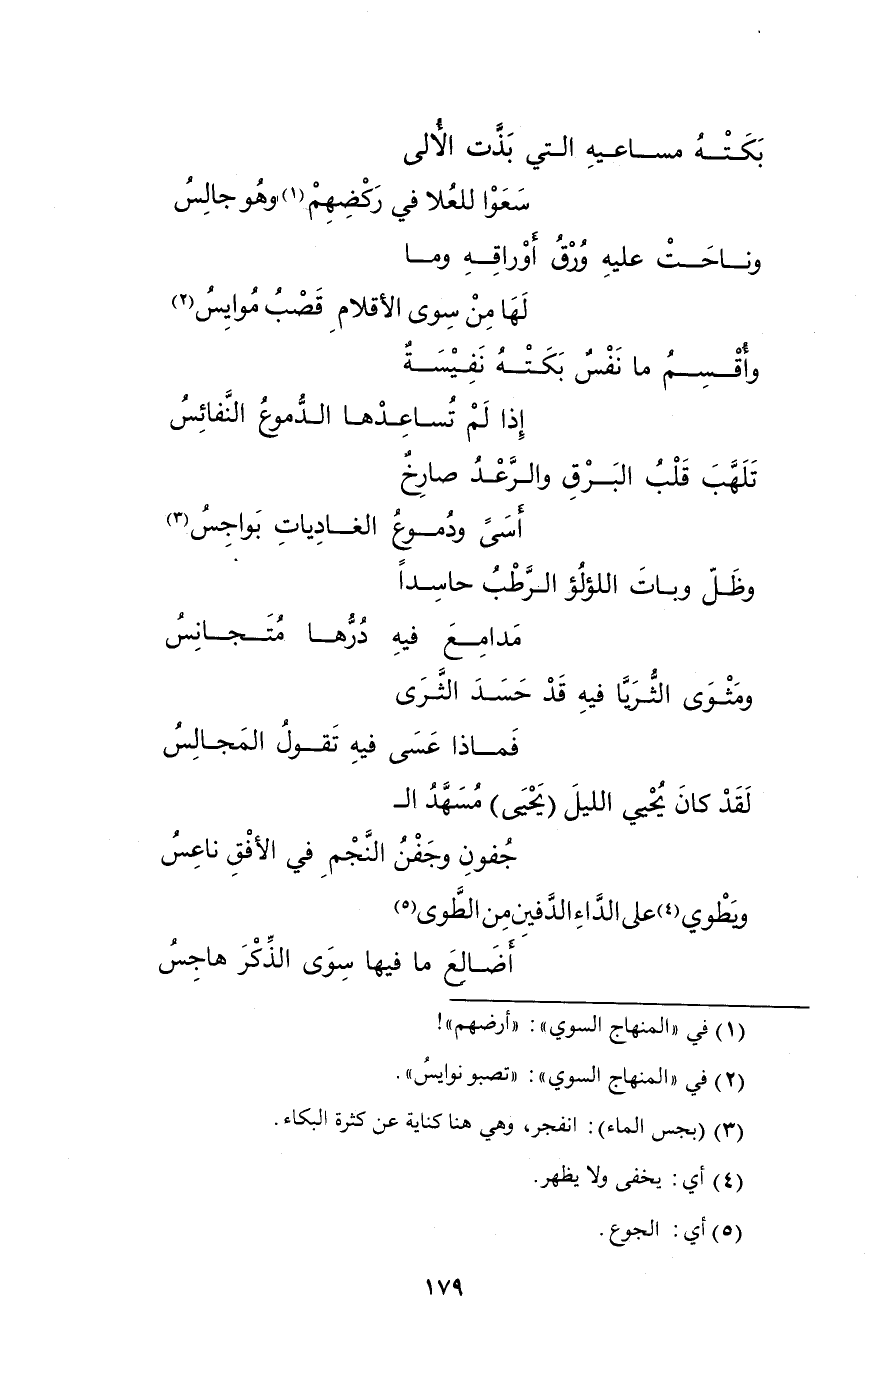 بَكَتْـهُ مسـاعـيهِ الـتي بَذَّت الأُلى
سَعَوْا للعُلا في رَكْضِهِمْ(١) وهُو جالِسُ
ونـاحَـتْ عليهِ وُرْقُ أَوْراقِـهِ ومـا
لَهَا مِنْ سِوى الأقلامِ قَصْبُ مُوايِسُ(٢)
وأُقْـسِـمُ ما نَفْسٌ بَكَتْـهُ نَفِيْسَـةٌ
إِذا لَمْ تُسـاعِـدْهـا الـدُّموعُ النَّفائسُ
تَلَهَّبَ قَلْبُ البَـرْقِ والـرَّعْـدُ صارِخٌ
أَسَىً ودُمـوعُ الغـادِياتِ بَواجِسُ(٣)
وظَـلّ وبـاتَ اللؤلُؤ الـرَّطْبُ حاسِـداً
مَدامِـعَ فيهِ دُرُّهـا مُتَـجـانِسُ
ومَثْـوَى الثُّـرَيَّا فيهِ قَدْ حَسَـدَ الثَّـرَى
فَمـاذا عَسَى فيهِ تَقـولُ المَجـالِسُ
لَقَدْ كانَ يُحْيي الليلَ (يَحْيَى) مُسَهَّدُ الـ
جُفونِ وجَفْنُ النَّجْمِ في الأفْقِ ناعِسُ
ويَطْوي(٤) على الدَّاءِ الدَّفينِ مِن الطَّوى(٥)
أَضَـالِعَ ما فيها سِوَى الذِّكْرَ هاجِسُ
(١) في «المنهاج السوي»: «أرضهم»!
(٢) في «المنهاج السوي»: «تصبو نوايسُ».
(٣) (بجس الماء): انفجر، وهي هنا كناية عن كثرة البكاء.
(٤) أي: يخفى ولا يظهر.
(٥) أي: الجوع.
١٧٩